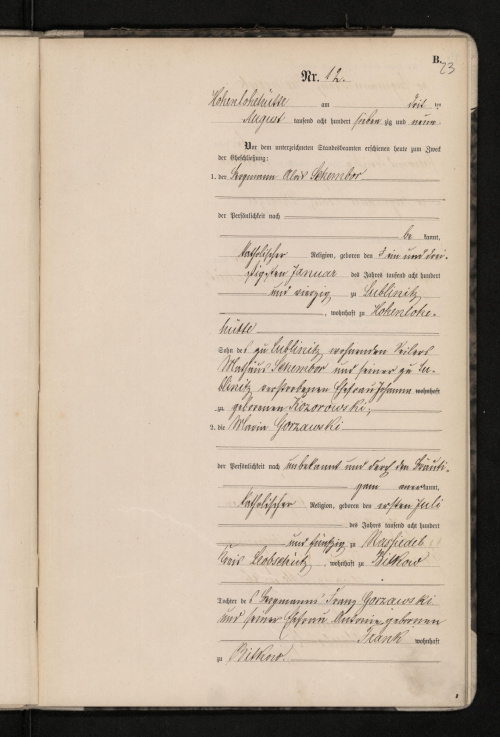 B.
23
Nr. 12.
Hohenlohehütte am
August tausend acht hundert sieben zig und neun.
Vor dem unterzeichneten Standesbeamten erschienen heute zum Zweck
der Eheschließung:
1. der Bergmann Alois Schembor
der Persönlichkeit nach
be kannt,
katholischer Religion, geboren den ein und drei-
ßigsten Januar des Jahres tausend acht hundert
und vierzig zu Lublinitz
, wohnhaft zu Hohenlohe-
hütte
Sohn des zu Lublinitz wohnenden Seilers
Mathäus Schembor und seiner zu Lu-
blinitz verstorbenen Ehefrau Johanna wohnhaft
zu geborenen Kozorowski;
2. die Maria Gorzawski
der Persönlichkeit nach unbekannt und durch den Bräuti-
gam anerkannt,
katholischer Religion, geboren den ersten Juli
des Jahres tausend acht hundert
und fünfzig zu
Kreis Leobschütz, wohnhaft zu Bitkow
Tochter des Bergmanns Franz Gorzawski
und seiner Ehefrau Antonie, geborenen
wohnhaft
zu Bitkow.